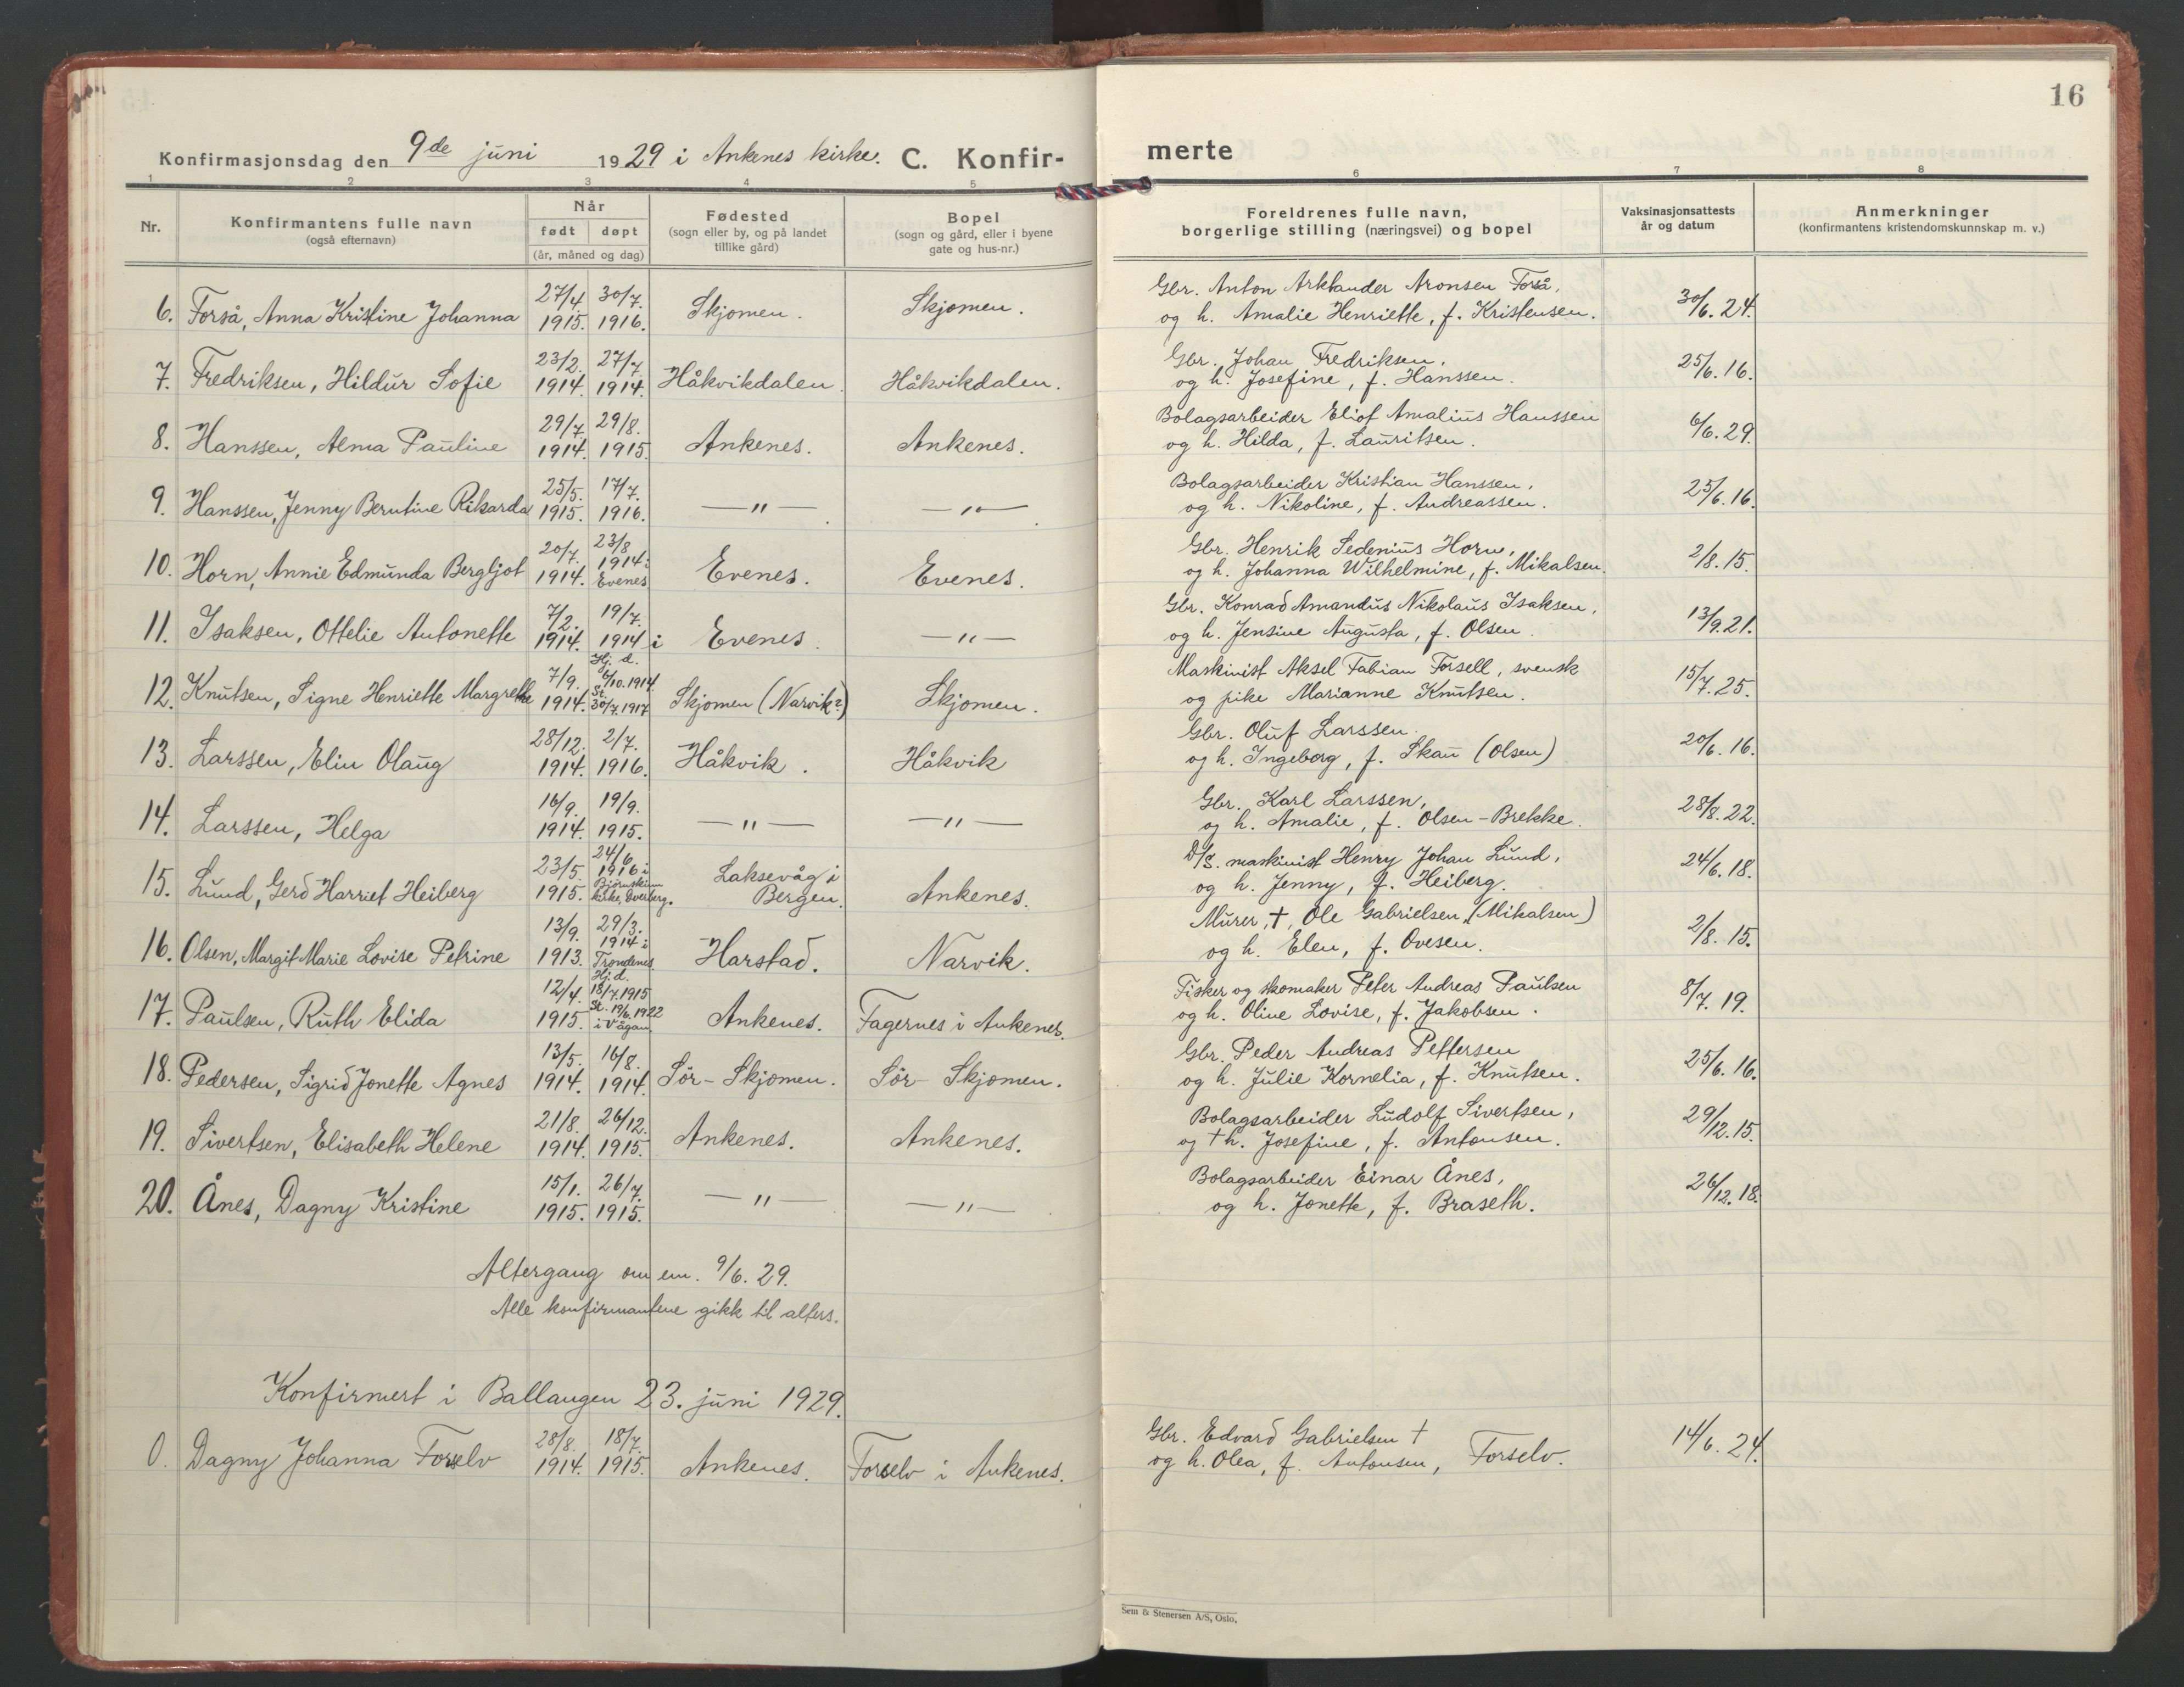 16
Konfirmasjonsdag den 9de juni 1929 i Ankenes kirke. C. Konfir-
merte
1 2 3 4 5 6 7 8
Nr.
Konfirmantens fulle navn
(også efternavn)
Når
født døpt
(år, måned og dag)
Fødested
(sogn eller by, og på landet
tillike gård)
Bopel
(sogn og gård, eller i byene
gate og hus-nr.)
Foreldrenes fulle navn,
borgerlige stilling (næringsvei) og bopel
Vaksinasjonsattests
år og datum
Anmerkninger
(konfirmantens kristendomskunnskap m. v.)
6. Forså, Anna Kristine Johanna 27/4. 1915. 30/7. 1916. Skjomen. Skjomen.
Gbr. Anton Arktander Aronsen Forså,
og h. Amalie Henriette, f. Kristensen. 30/6. 24.
7. Fredriksen, Hildur Sofie 23/2. 1914. 27/7. 1914. Håkvikdalen. Håkvikdalen.
Gbr. Johan Fredriksen,
og h. Josefine, f. Hanssen. 25/6. 16.
8. Hanssen, Alma Pauline 29/7. 1914. 29/8. 1915. Ankenes. Ankenes.
Bolagsarbeider Eliof Amalius Hanssen
og h. Hilda, f. Lauritsen. 6/6. 29.
9. Hanssen, Jenny Berntine Rikarda 25/5. 1915. 17/7. 1916. — " — . — " — .
Bolagsarbeider Kristian Hanssen,
og h. Nikoline, f. Andreassen. 25/6. 16.
10. Horn, Annie Edmunda Bergljot 20/7. 1914. 23/8 1914 i Evenes Evenes. Evenes.
Gbr. Henrik Sedenius Horn,
og h. Johanna Wilhelmine, f. Mikalsen. 2/8. 15.
11. Isaksen, Ottelie Antonette 7/2. 1914. 19/7. 1914 i Evenes. — " —
Gbr. Konrad Amandus Nikolaus Isaksen,
og h. Jensine Augusta, f. Olsen. 13/9. 21.
12. Knutsen, Signe Henriette Margrethe 7/9. 1914. Hj. d. 6/10. 1914. St. 30/7. 1917 Skjomen (Narvik?) Skjomen.
Maskinist Aksel Fabian Forsell, svensk
og pike Marianne Knutsen. 15/7. 25.
13. Larssen, Elin Olaug 28/12. 1914. 2/7. 1916. Håkvik. Håkvik
Gbr. Oluf Larssen
og h. Ingeborg, f. Skau (Olsen) 20/6. 16.
14. Larssen, Helga 16/9. 1914. 19/9. 1915. — " — — " —
Gbr. Karl Larssen,
og h. Amalie, f. Olsen-Brekke. 28/8. 22.
15. Lund, Gerd Harriet Heiberg 23/5. 1915. 24/6 1916 i Bjørnskinn kirke, Dverberg. Laksevåg i Bergen. Ankenes.
D/S. maskinist Henry Johan Lund,
og h. Jenny, f. Heiberg. 24/6. 18.
16. Olsen, Margit Marie Lovise Petrine 13/9. 1913. 29/3. 1914 i Trondenes Harstad. Narvik.
Murer, †, Ole Gabrielsen (Mikalsen)
og h. Elen, f. Ovesen. 2/8. 15.
17. Paulsen, Ruth Elida 12/4. 1915. Hj. d. 18/7. 1915 St. 19/6. 1922 i Vågan. Ankenes. Fagernes i Ankenes.
Fisker og skomaker Peter Andreas Paulsen
og h. Oline Lovise, f. Jakobsen. 8/7. 19.
18. Pedersen, Sigrid Jonette Agnes 13/5. 1914. 16/8. 1914. Sör-Skjomen. Sör-Skjomen.
Gbr. Peder Andreas Pettersen
og h. Julie Kornelia, f. Knutsen. 25/6. 16.
19. Sivertsen, Elisabeth Helene 21/8. 1914. 26/12. 1915. Ankenes. Ankenes.
Bolagsarbeider Ludolf Sivertsen,
og † h. Josefine, f. Antonsen. 29/12. 15.
20. Ånes, Dagny Kristine 15/1. 1915. 26/7. 1915. — " — — " —
Bolagsarbeider Einar Ånes,
og h. Jonette, f. Braseth. 26/12. 18.
Altergang om em. 9/6. 29.
Alle konfirmantene gikk til alters.
Konfirmert i Ballangen 23. juni 1929.
0. Dagny Johanna Forselv 28/8. 1914. 18/7. 1915. Ankenes. Forselv i Ankenes.
Gbr. Edvard Gabrielsen †
og h. Olea, f. Antonsen, Forselv. 14/6. 24.
Sem & Stenersen A/S, Oslo.